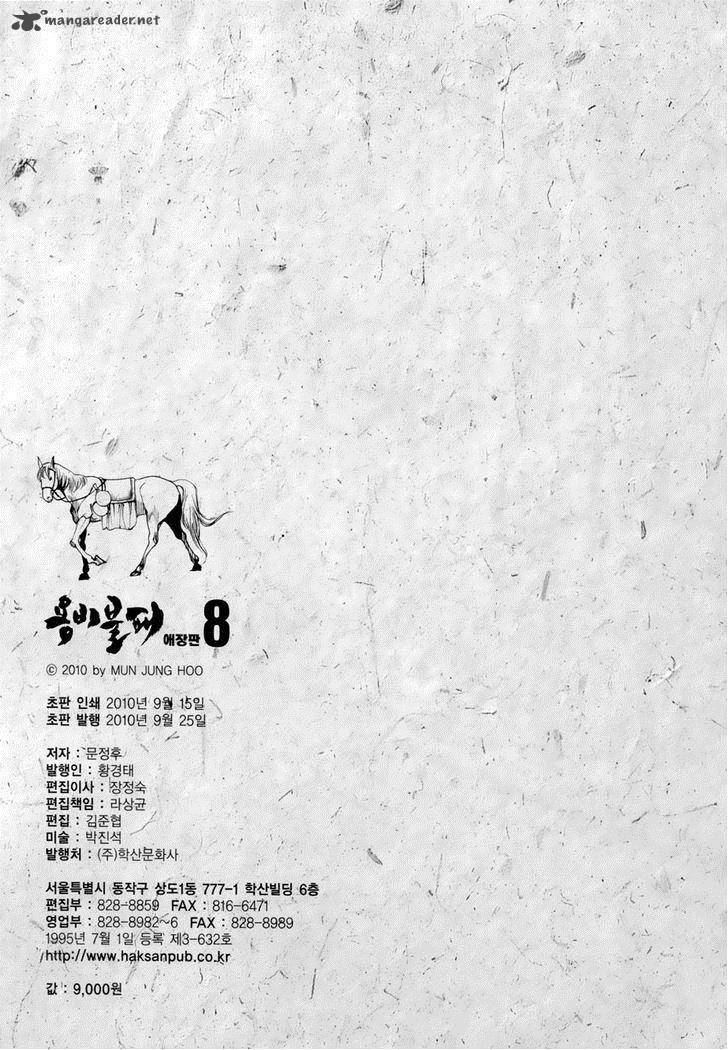 mangareader.net
용비불패 애장판 8
© 2010 by MUN JUNG HOO
초판 인쇄 2010년 9월 15일
초판 발행 2010년 9월 25일
저자 : 문정후
발행인 : 황경태
편집이사 : 장정숙
편집책임 : 라상균
편집 : 김준협
미술 : 박진석
발행처 : (주)학산문화사
서울특별시 동작구 상도1동 777-1 학산빌딩 6층
편집부 : 828-8859 FAX : 816-6471
영업부 : 828-8982~6 FAX : 828-8989
1995년 7월 1일 등록 제3-632호
http://www.haksanpub.co.kr
값 : 9,000원